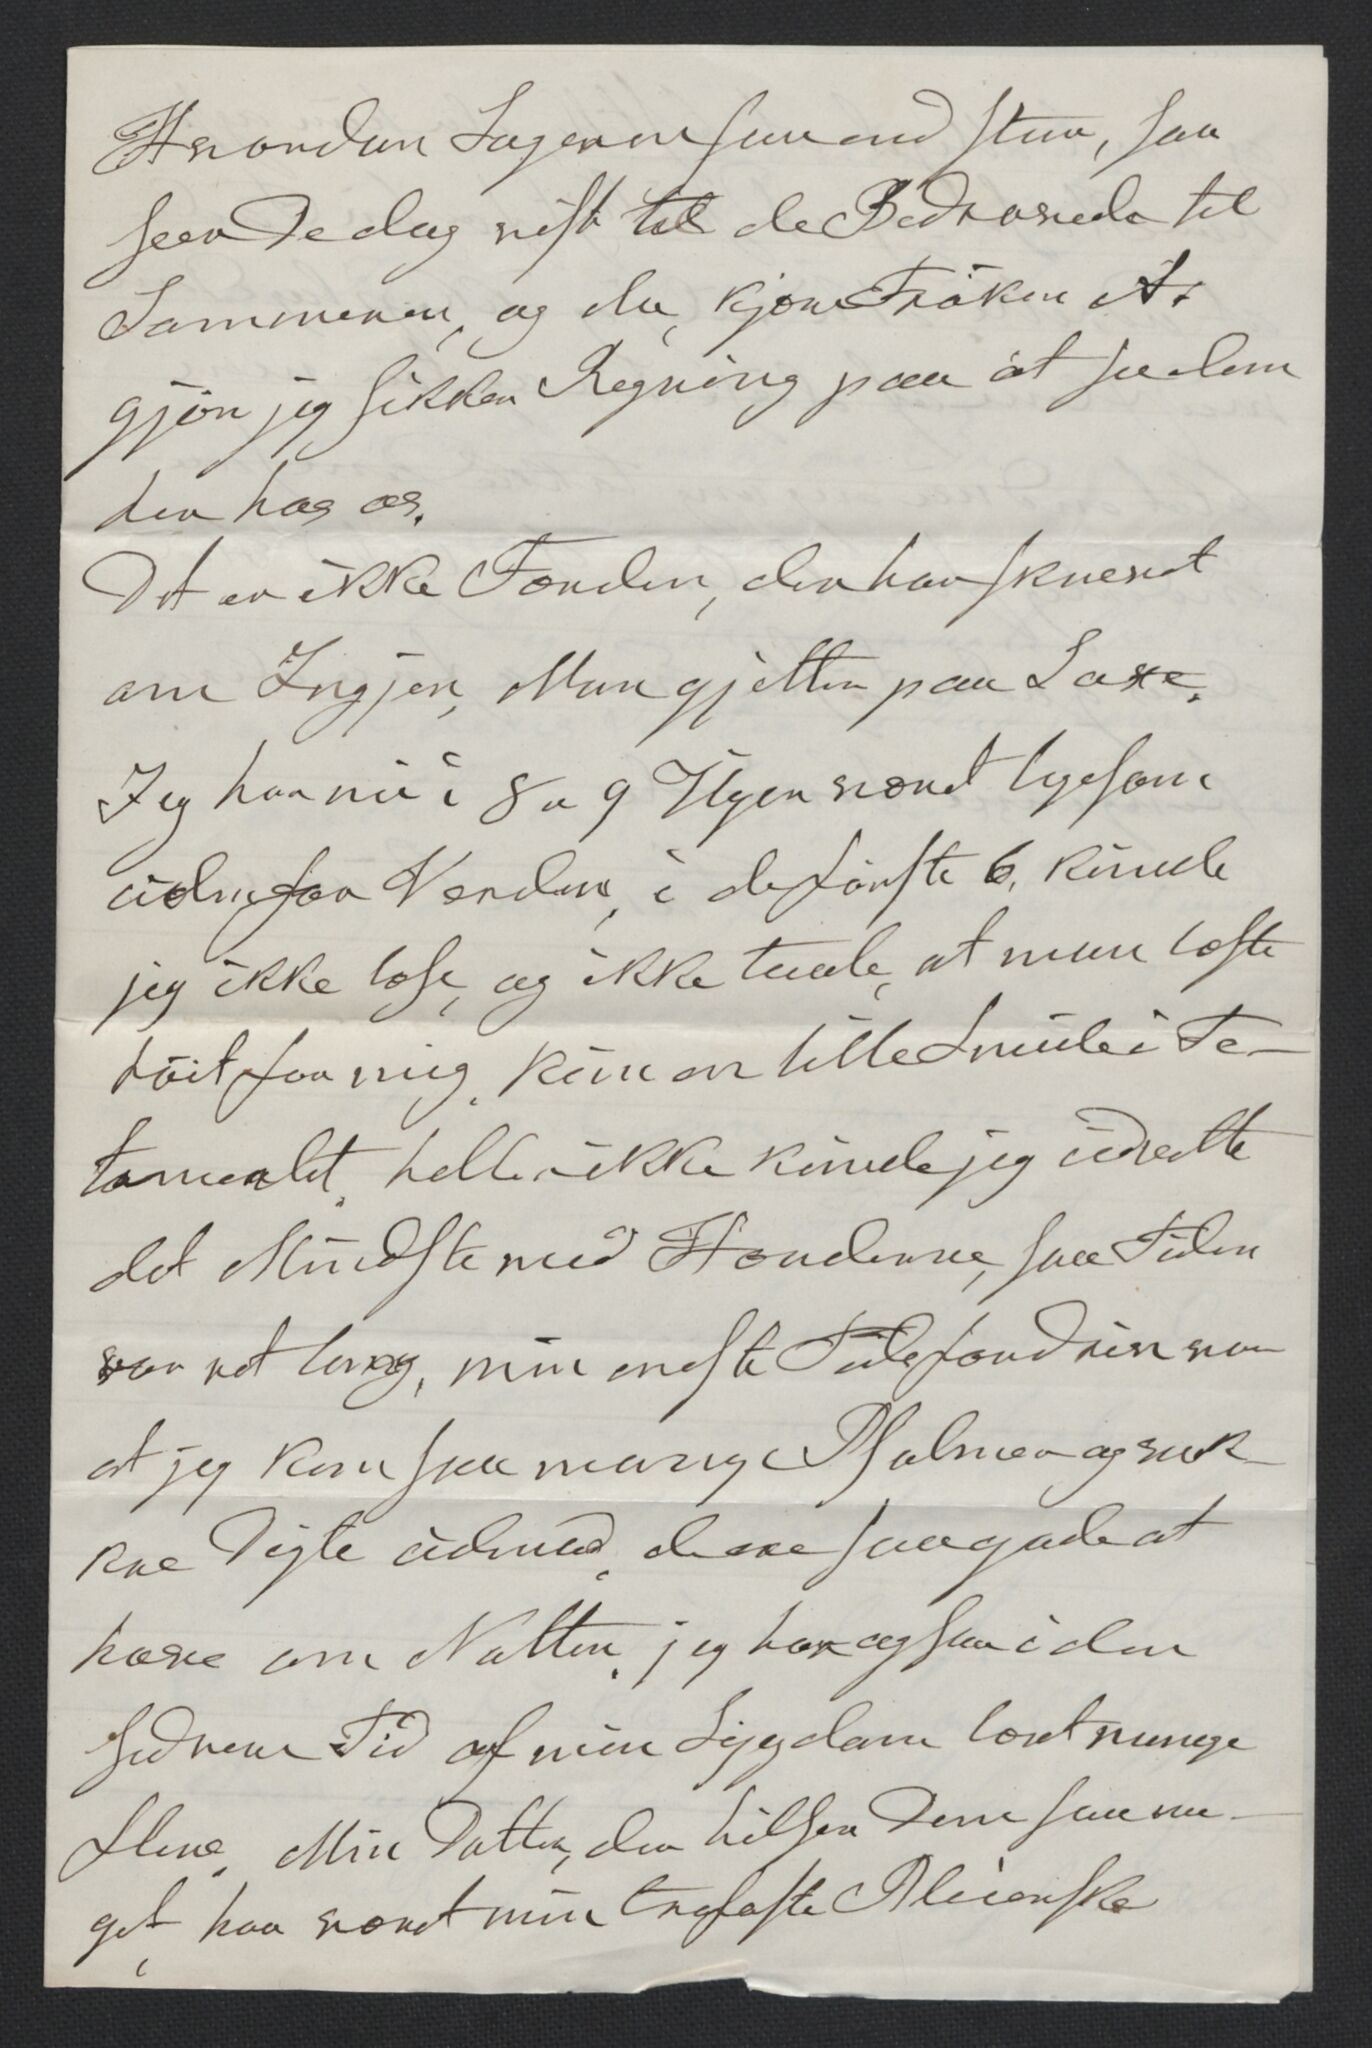 Hvordan Sagerne saa end staa, saa
seer De dog vist til de Bedrøvede til
Sommeren, og da, kjære Frøken A.
gjör jeg sikker Regning paa at see dem
her hos os.
Det er ikke Fonden, der har skrevet
om Ingjer, Man gjetter paa Saxe.
Jeg har nu i 8 a 9 Uger været ligesom
udenfor Verden, i de förste 6, kunde
jeg ikke læse, og ikke taale, at man læste
höit for mig, kun en lille Smule i Te-
tamentet, heller ikke kunde jeg udrette
det Mindste med Hænderne, saa Tiden
var ret lang, min eneste Tidsfordriv var
at jeg kan saa mange Psalmer og smuk-
ke Digte udenad, de ere saa gode at
have om Natten, jeg har ogsaa i den
sednere Tid af min Sygdom lært mange
flere. Min Datter, der hilser Dem saa me-
get, har været min trofaste Pleierske